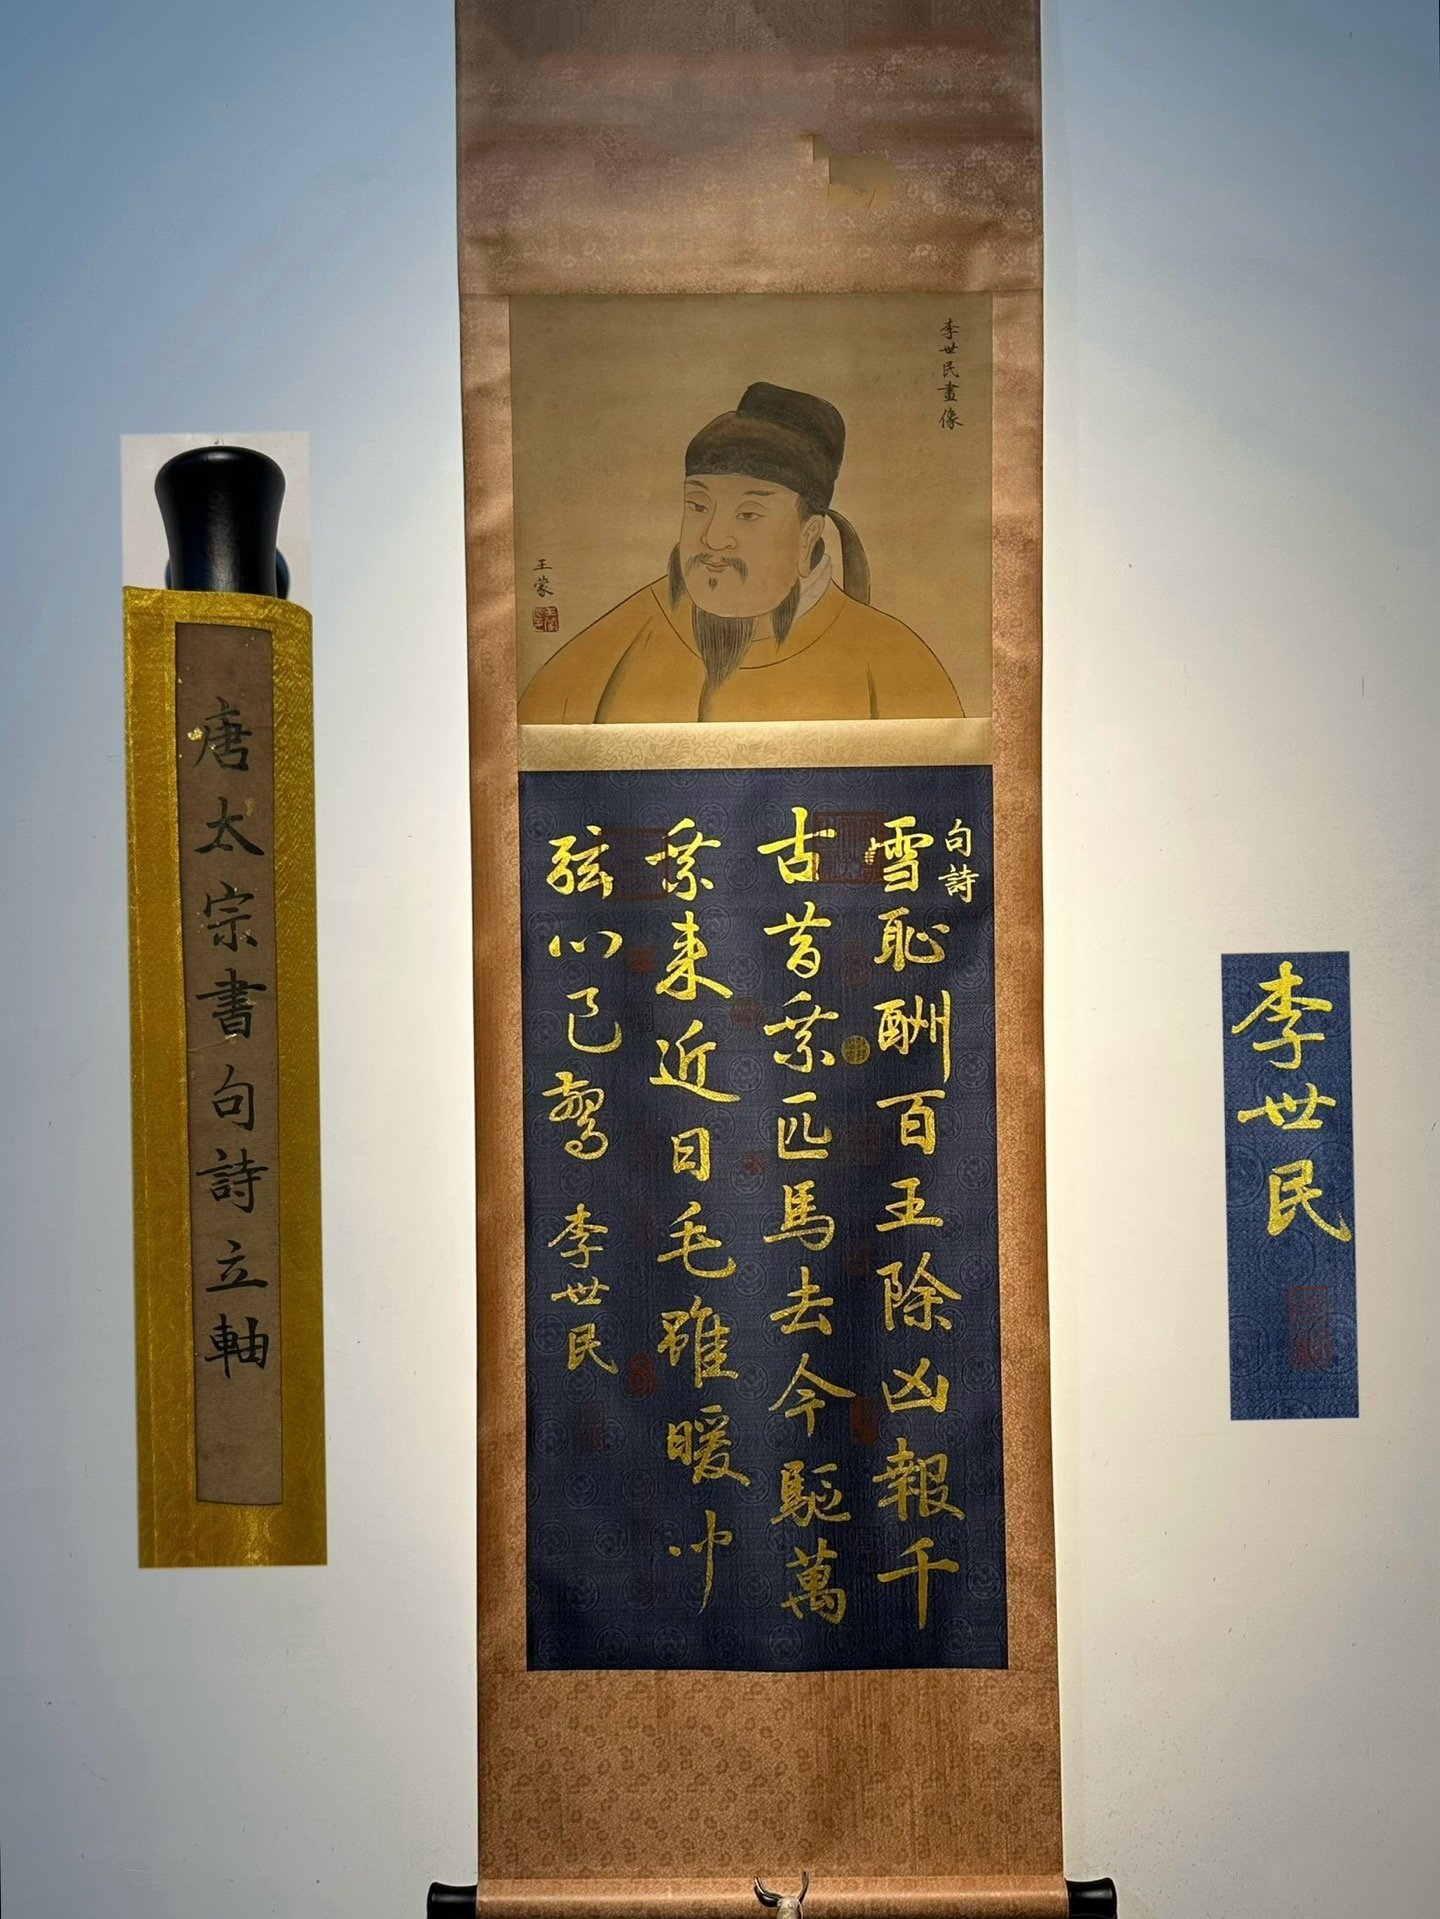 唐太宗書句詩立軸
李世民畫像
王蒙
句詩
雪恥酬百王除凶報千
古昔乗匹馬去今驅萬
乗来近日毛雖暖
弦心已驚
李世民
李世民